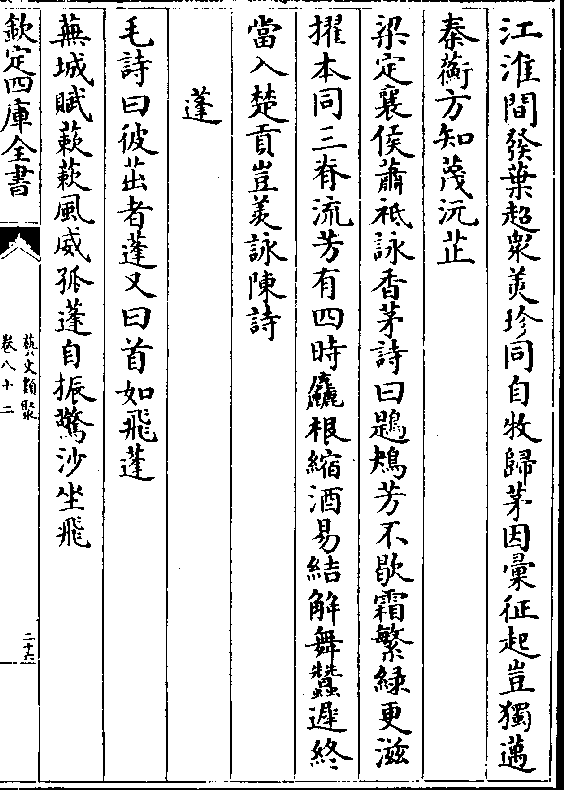 江淮間發葉超衆美珍同自牧歸茅因彚征起豈獨邁
秦蘅方知蔑沅芷
梁定襄侯蕭祗詠香茅詩曰鶗鴂芳不歇霜繁綠更滋
擢本同三脊流芳有四時麤根縮酒易結解舞蠶遲終
當入楚貢豈羨詠陳詩
蓬
毛詩曰彼茁者蓬又曰首如飛蓬
蕪城賦蔌蔌風威孤蓬自振驚沙坐飛
欽定四庫全書
藝文類聚
卷八十二
二十六